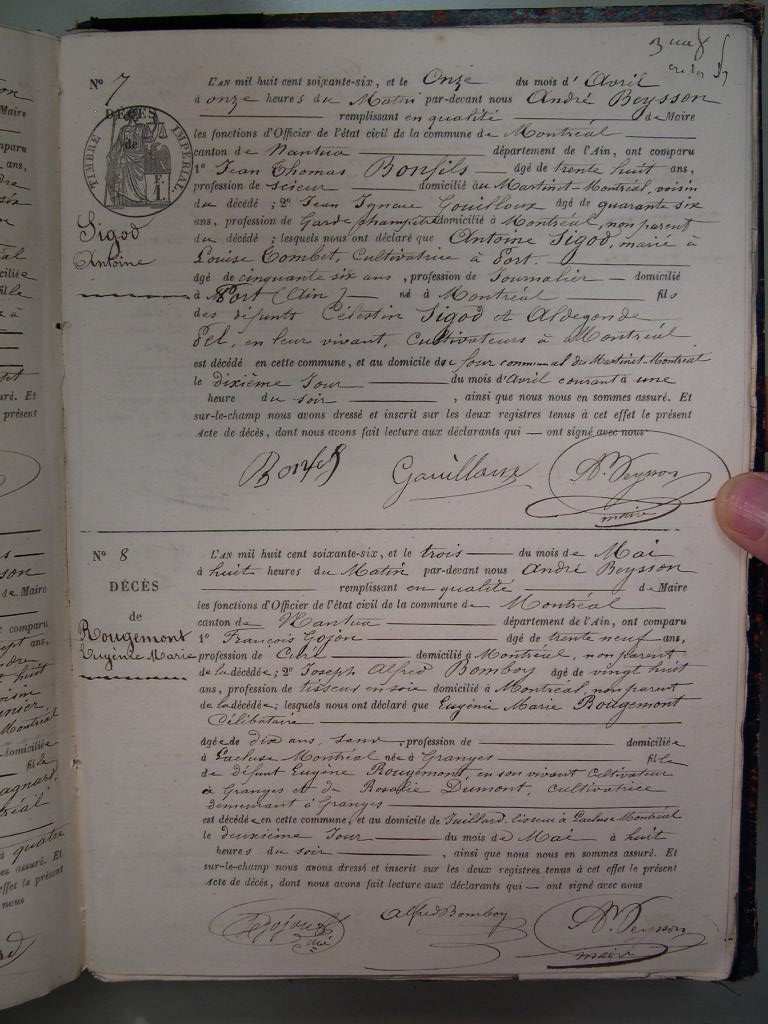 N° 7
DÉCÈS
de
TIMBRE IMPÉRIAL
Sigod
Antoine
L'AN mil huit cent soixante-six, et le Onze du mois d'Avril
à onze heures du Matin par-devant nous André Beysson
remplissant en qualité de Maire
les fonctions d'Officier de l'état civil de la commune de Montréal
canton de Nantua département de l'Ain, ont comparu
1° Jean Thomas Bonfils âgé de trente huit ans,
profession de Scieur domicilié au Martinet-Montréal, voisin
du décédé ; 2° Jean Ignace Gouilloux âgé de quarante six
ans, profession de Garde champêtre domicilié à Montréal, non parent
du décédé ; lesquels nous ont déclaré que Antoine Sigod, marié à
Louise Combet, Cultivatrice à Port.
âgé de cinquante six ans, profession de Journalier domicilié
à Port (Ain) né à Montréal fils
des défunts Célestin Sigod et Aldegonde
Pel, en leur vivant, Cultivateurs à Montréal
est décédé en cette commune, et au domicile du four communal du Martinet-Montréal
le dixième Jour du mois d'Avril courant à une
heure du soir, ainsi que nous nous en sommes assuré. Et
sur-le-champ nous avons dressé et inscrit sur les deux registres tenus à cet effet le présent
Acte de décès, dont nous avons fait lecture aux déclarants qui ont signé avec nous
Bonfils Gouilloux A. Beysson
maire
N° 8
DÉCÈS
de
Rougemont
Eugénie Marie
L'AN mil huit cent soixante-six, et le trois du mois de Mai
à huit heures du Matin par-devant nous André Beysson
remplissant en qualité de Maire
les fonctions d'Officier de l'état civil de la commune de Montréal
canton de Nantua département de l'Ain, ont comparu
1° François Gojon âgé de trente neuf ans,
profession de Curé domicilié à Montréal, non parent
de la décédée ; 2° Joseph Alfred Bomboy âgé de vingt huit
ans, profession de tisseur en soie domicilié à Montréal, non parent
de la décédée ; lesquels nous ont déclaré que Eugénie Marie Rougemont
Célibataire
âgée de dix ans, sans, profession de domiciliée
à Lacluse Montréal née à Granges fille
de défunt Eugène Rougemont, en son vivant Cultivateur
à Granges et de Rosalie Dumont, cultivatrice
demeurant à Granges
est décédée en cette commune, et au domicile de Juillard, tisseur à Lacluse Montréal
le deuxième Jour du mois de Mai à huit
heures du soir, ainsi que nous nous en sommes assuré. Et
sur-le-champ nous avons dressé et inscrit sur les deux registres tenus à cet effet le présent
Acte de décès, dont nous avons fait lecture aux déclarants qui ont signé avec nous
Gojon Curé Alfred Bomboy A. Beysson
maire